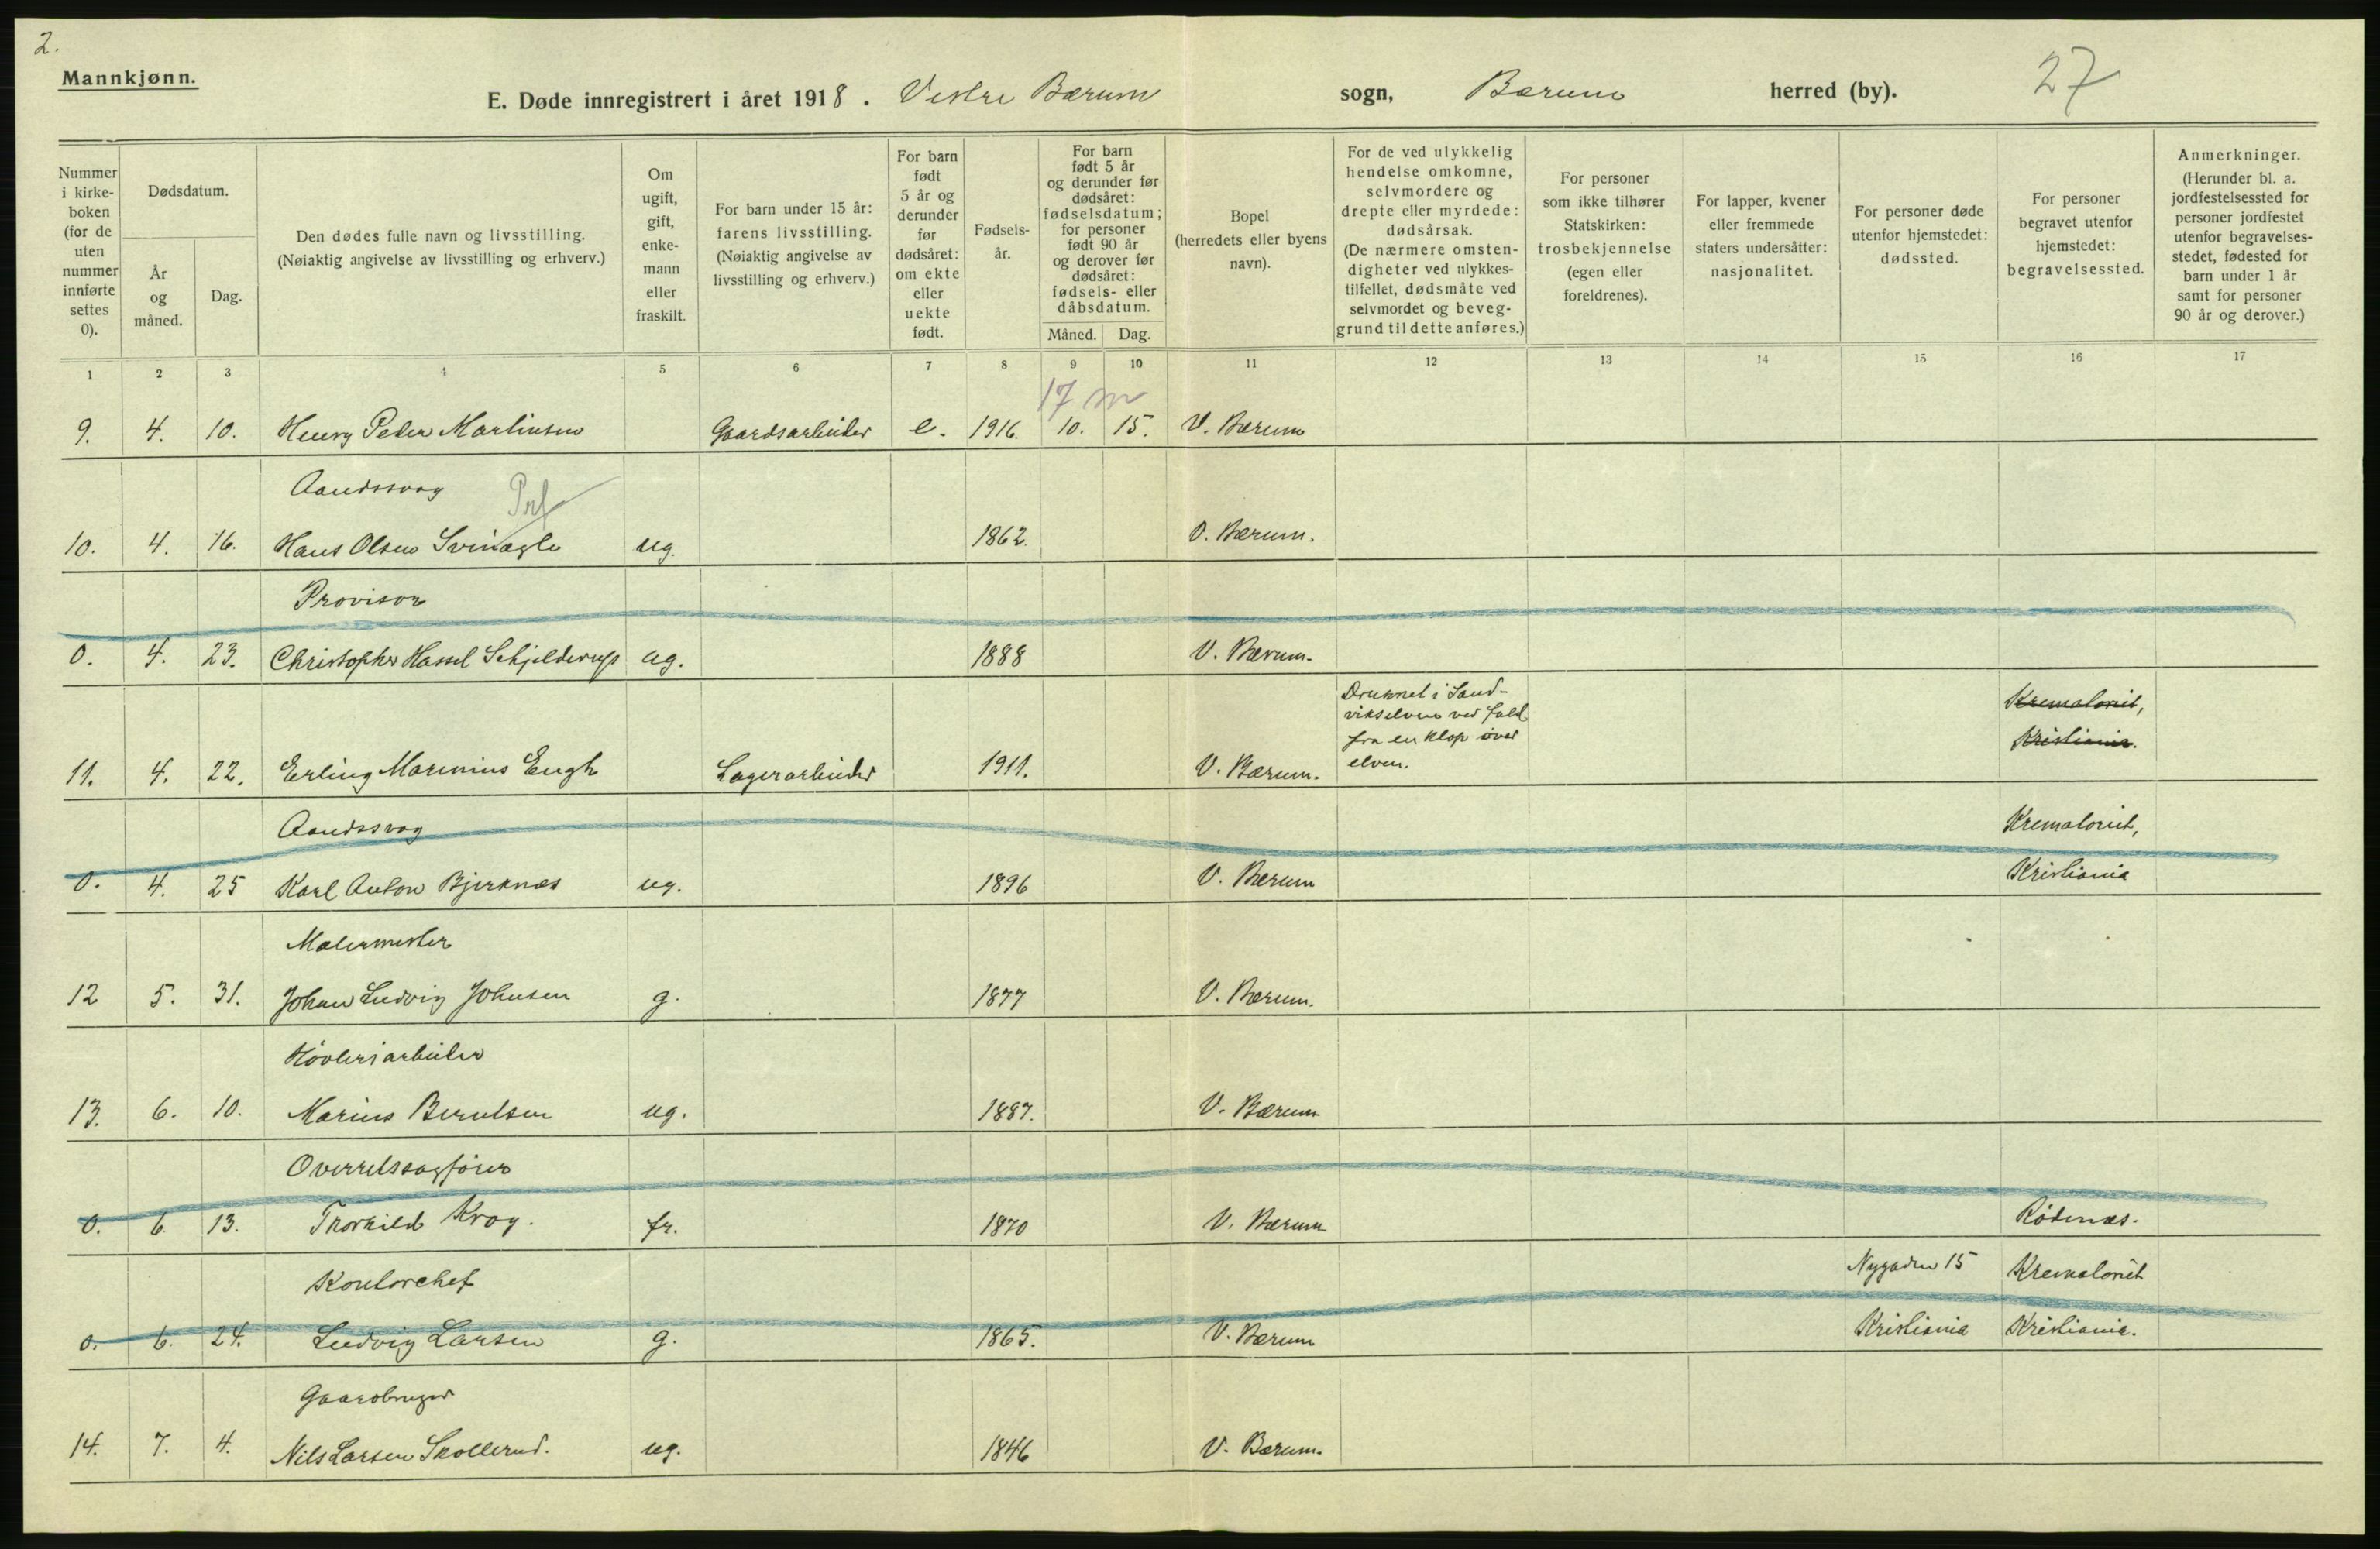 2.
Mannkjønn.
E. Døde innregistrert i året 1918. Vestre Bærum sogn, Bærum herred (by). 27
Nummer i kirke-boken (for de uten nummer innførte settes 0).
Dødsdatum.
År og måned.
Dag.
Den dødes fulle navn og livsstilling.
(Nøiaktig angivelse av livsstilling og erhverv.)
Om ugift, gift, enke-mann eller fraskilt.
For barn under 15 år: farens livsstilling.
(Nøiaktig angivelse av livsstilling og erhverv.)
For barn født 5 år og derunder før dødsåret: om ekte eller uekte født.
Fødsels-år.
For barn født 5 år og derunder før dødsåret: fødselsdatum; for personer født 90 år og derover før dødsåret: fødsels- eller dåbsdatum.
Måned. Dag.
Bopel (herredets eller byens navn).
For de ved ulykkelig hendelse omkomne, selvmordere og drepte eller myrdede: dødsårsak.
(De nærmere omsten-digheter ved ulykkes-tilfellet, dødsmåte ved selvmordet og beveg-grund til dette anføres.)
For personer som ikke tilhører Statskirken: trosbekjennelse (egen eller foreldrenes).
For lapper, kvener eller fremmede staters undersåtter: nasjonalitet.
For personer døde utenfor hjemstedet: dødssted.
For personer begravet utenfor hjemstedet: begravelsessted.
Anmerkninger.
(Herunder bl. a. jordfestelsessted for personer jordfestet utenfor begravelses-stedet, fødested for barn under 1 år samt for personer 90 år og derover.)
1 2 3 4 5 6 7 8 9 10 11 12 13 14 15 16 17
17 m
9. 4. 10. Henry Peder Martinsen Gaardsarbeider e. 1916. 10. 15. V. Bærum
Aandssvag
Prf
10. 4. 16. Hans Olsen Svinægle ug. 1862. V. Bærum.
Provisor
0. 4. 23. Christopher Hassel Schjelderup ug. 1888 V. Bærum.
Druknet i Sand-
vikselven ved fald
fra en klop over
elven.
Krematoriet,
Kristiania.
11. 4. 22. Erling Marinius Engh Lagerarbeider 1911. V. Bærum.
Aandssvag Krematoriet,
0. 4. 25 Karl Anton Bjerknæs ug. 1896 V. Bærum Kristiania
Malermester
12 5. 31. Johan Ludvig Johnsen g. 1877 V. Bærum.
Høvleriarbeider
13. 6. 10. Marius Berntsen ug. 1887. V. Bærum
Overretssagfører
0. 6. 13. Thorkild Krog. fr. 1870 V. Bærum Rødenæs.
Kontorchef Nygaden 15 Krematoriet
0. 6. 24. Ludvig Larsen g. 1865. V. Bærum Kristiania Kristiania.
Gaardbruger
14. 7. 4. Nils Larsen Skollerud. ug. 1846 V. Bærum.